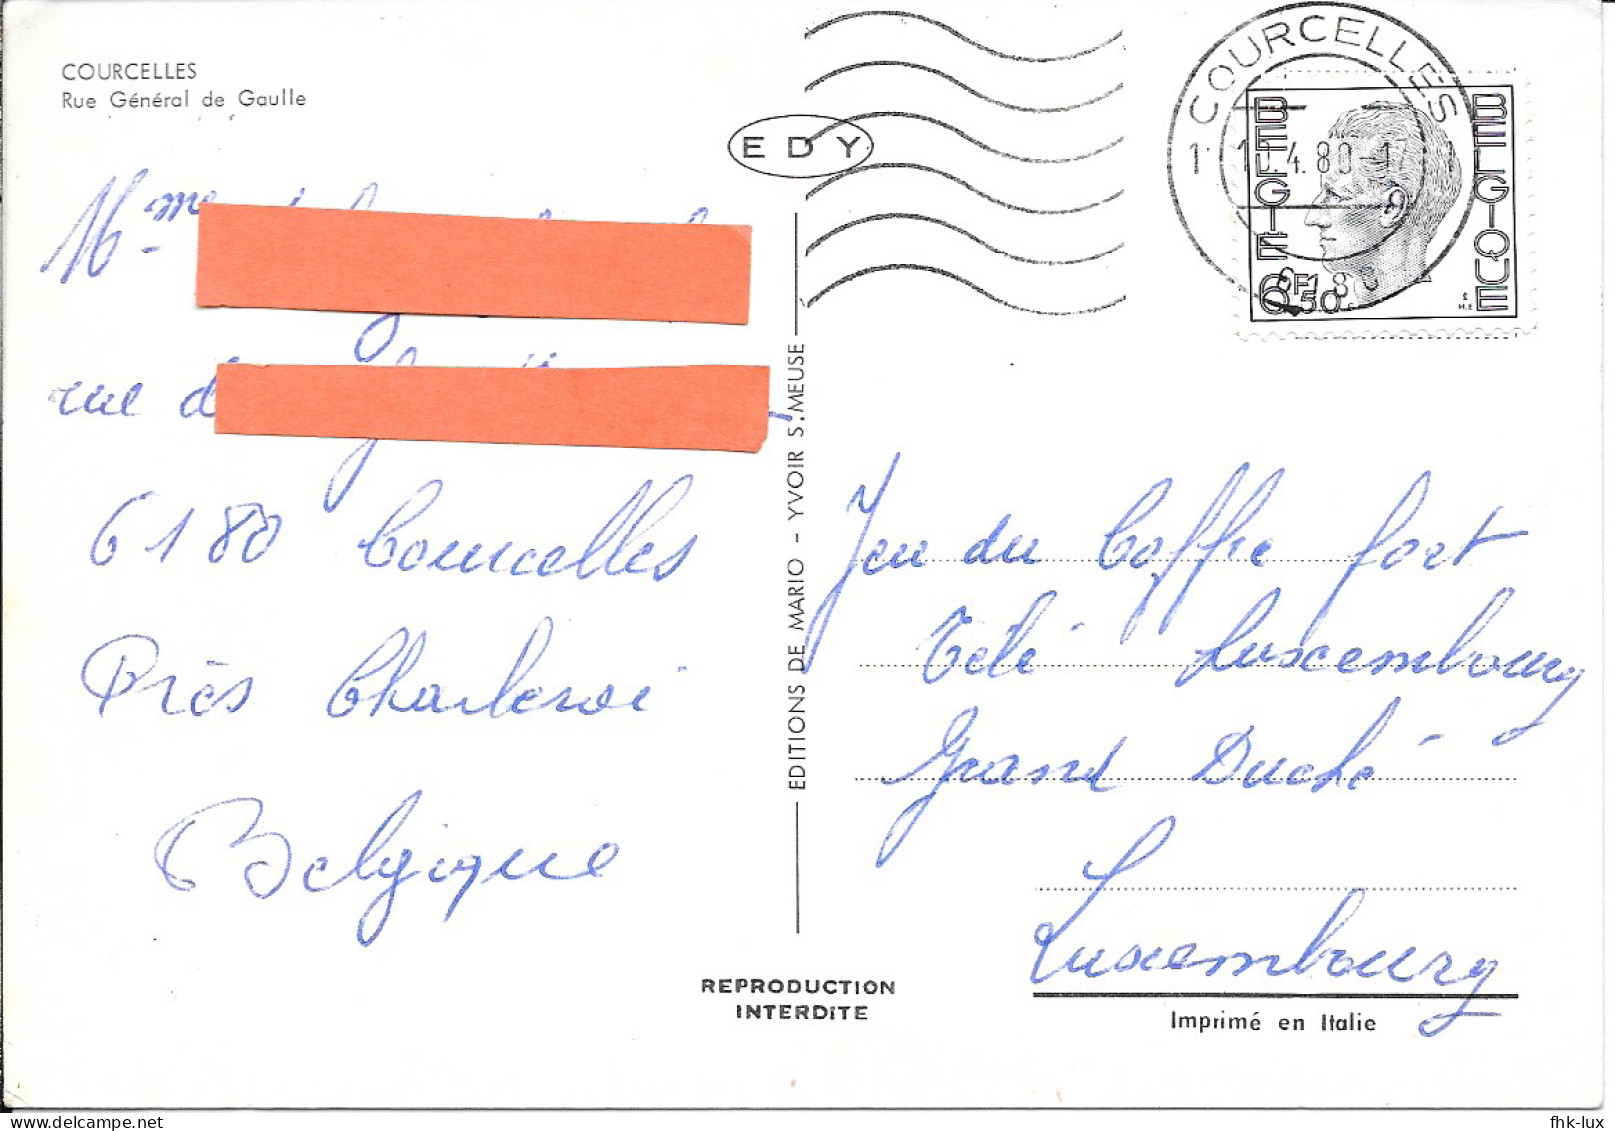 COURCELLES
Rue Général de Gaulle
EDY
COURCELLES
4.80-17
BELGIE
BELGIQUE
6F50
Mme
rue
6180 Courcelles
Près Charleroi
Belgique
EDITIONS DE MARIO - YVOIR S.MEUSE
Jeu du Coffre fort
Télé Luxembourg
Grand Duché
Luxembourg
REPRODUCTION
INTERDITE
Imprimé en Italie
fhk-lux